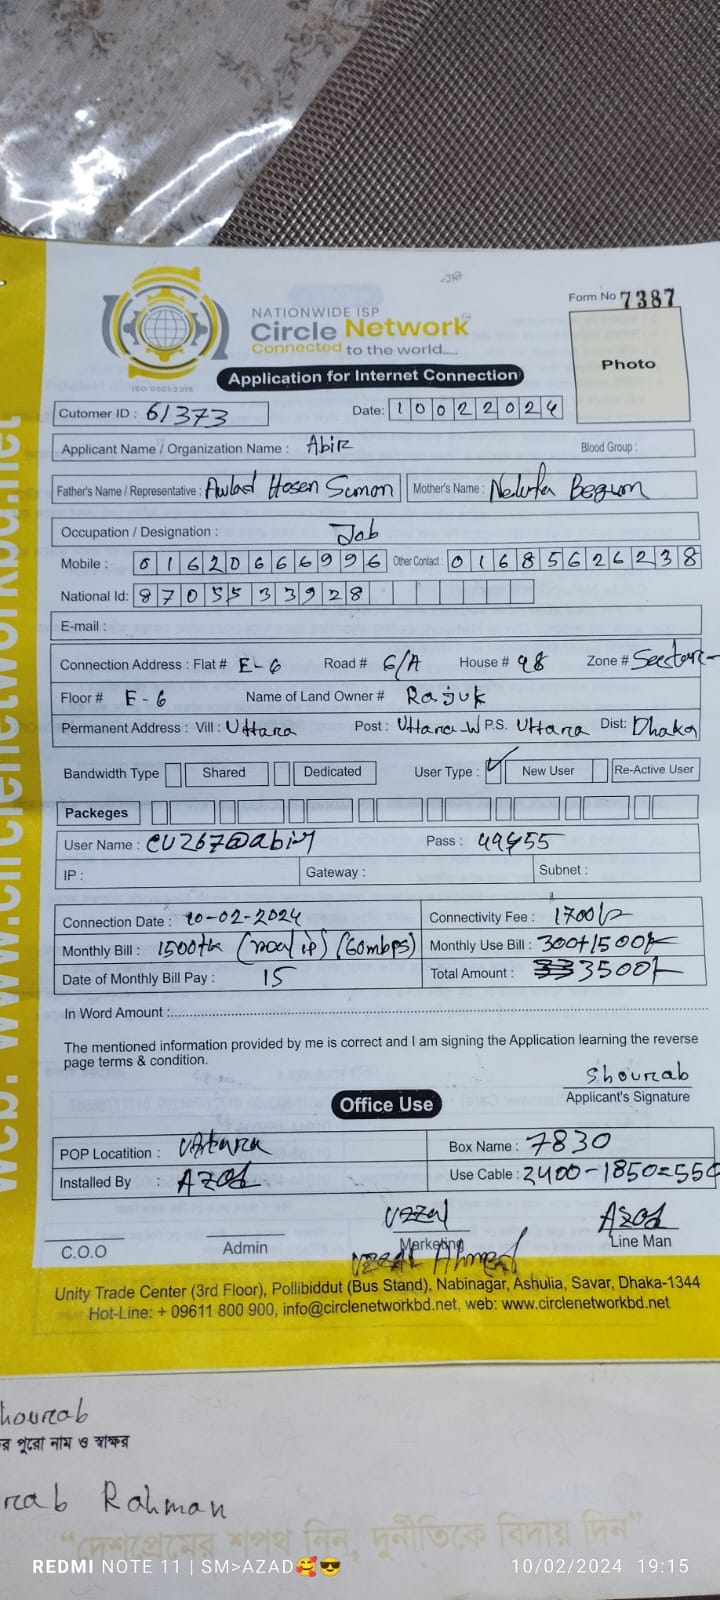 NATIONWIDE ISP
Circle Network
Connected to the world.....
ISO 9001:2015
Form No 7387
Photo
Application for Internet Connection
Cutomer ID : 61373
Date: 10022024
Applicant Name / Organization Name : Abir
Blood Group :
Father's Name / Representative : Awlad Hosen Sumon
Mother's Name : Begum
Occupation / Designation : Job
Mobile : 01620666996
Other Contact : 01685626238
National Id: 8705533928
E-mail :
Connection Address : Flat # E-6 Road # 6/A House # 98 Zone # Sector-
Floor # E-6 Name of Land Owner # Rajuk
Permanent Address : Vill : Uttara Post : Uttara-W P.S. Uttara Dist: Dhaka
Bandwidth Type Shared Dedicated User Type : ✓ New User Re-Active User
Packeges
User Name : cu267@abir Pass : 49455
IP : Gateway : Subnet :
Connection Date : 10-02-2024 Connectivity Fee : 1700/-
Monthly Bill : 1500tk (real ip) (60mbps) Monthly Use Bill : 300+1500/-
Date of Monthly Bill Pay : 15 Total Amount : 3500/-
In Word Amount :
The mentioned information provided by me is correct and I am signing the Application learning the reverse
page terms & condition.
Shourab
Applicant's Signature
Office Use
POP Locatition : Uttara Box Name : 7830
Installed By : Azad Use Cable : 2400-1850=550
Uzzal Azad
C.O.O Admin Marketing Line Man
Uzzal Ahmed
Unity Trade Center (3rd Floor), Pollibiddut (Bus Stand), Nabinagar, Ashulia, Savar, Dhaka-1344
Hot-Line: + 09611 800 900, info@circlenetworkbd.net, web: www.circlenetworkbd.net
web: www.circlenetworkbd.net
hourab
র পুরো নাম ও স্বাক্ষর
rab Rahman
“দেশপ্রেমের শপথ নিন, দুর্নীতিকে বিদায় দিন”
REDMI NOTE 11 | SM>AZAD🥰😎
10/02/2024 19:15